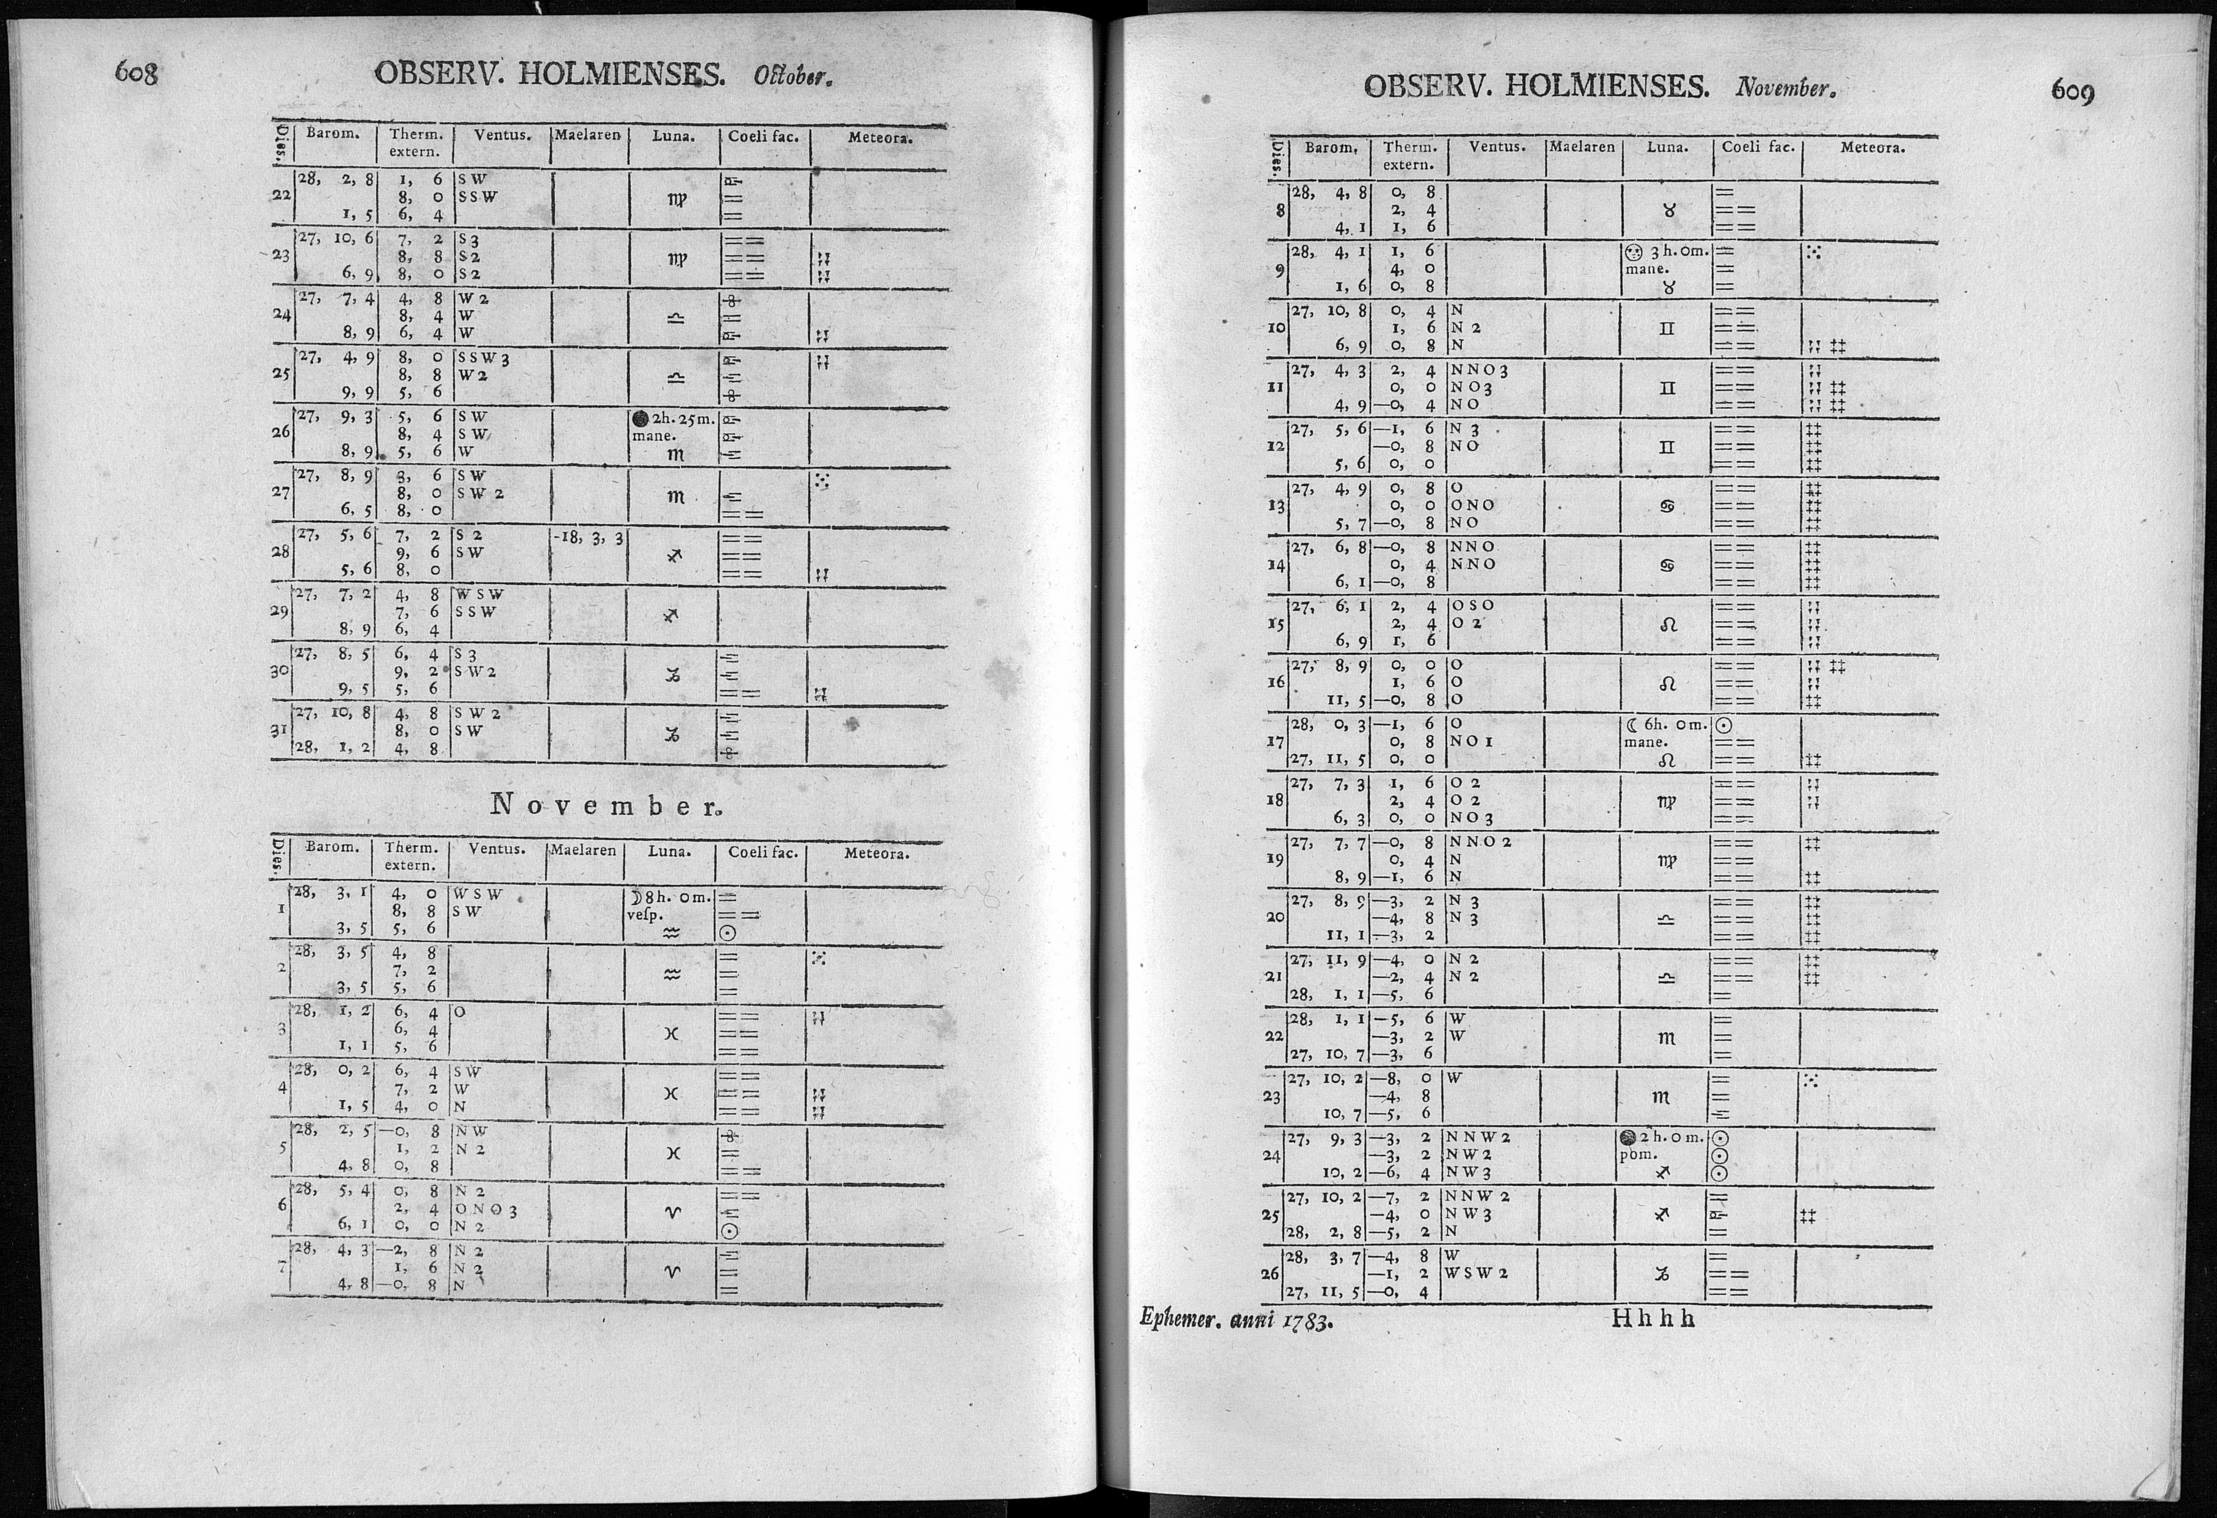 608
OBSERV. HOLMIENSES. October.
Dies. Barom. Therm. extern. Ventus. Maelaren Luna. Coeli fac. Meteora.
22 28, 2, 8 1, 6 S W
8, 0 S S W ♍
1, 5 6, 4
23 27, 10, 6 7, 2 S 3
8, 8 S 2 ♍
6, 9 8, 0 S 2
24 27, 7, 4 4, 8 W 2
8, 4 W ♎
8, 9 6, 4 W
25 27, 4, 9 8, 0 S S W 3
8, 8 W 2 ♎
9, 9 5, 6
26 27, 9, 3 5, 6 S W ● 2h. 25m.
8, 4 S W mane.
8, 9 5, 6 W ♏
27 27, 8, 9 3, 6 S W
8, 0 S W 2 ♏
6, 5 8, 0
28 27, 5, 6 7, 2 S 2 -18, 3, 3
9, 6 S W ♐
5, 6 8, 0
29 27, 7, 2 4, 8 W S W
7, 6 S S W ♐
8, 9 6, 4
30 27, 8, 5 6, 4 S 3
9, 2 S W 2 ♑
9, 5 5, 6
31 27, 10, 8 4, 8 S W 2
8, 0 S W ♑
28, 1, 2 4, 8
November.
Dies. Barom. Therm. extern. Ventus. Maelaren Luna. Coeli fac. Meteora.
1 28, 3, 1 4, 0 W S W ☽ 8h. 0m.
8, 8 S W vesp.
3, 5 5, 6 ♒ ☉
2 28, 3, 5 4, 8
7, 2 ♒
3, 5 5, 6
3 28, 1, 2 6, 4 O
6, 4 ♓
1, 1 5, 6
4 28, 0, 2 6, 4 S W
7, 2 W ♓
1, 5 4, 0 N
5 28, 2, 5 —0, 8 N W
1, 2 N 2 ♓
4, 8 0, 8
6 28, 5, 4 0, 8 N 2
2, 4 O N O 3 ♈
6, 1 0, 0 N 2 ☉
7 28, 4, 3 —2, 8 N 2
1, 6 N 2 ♈
4, 8 —0, 8 N
OBSERV. HOLMIENSES. November.
609
Dies. Barom. Therm. extern. Ventus. Maelaren Luna. Coeli fac. Meteora.
8 28, 4, 8 0, 8
2, 4 ♉
4, 1 1, 6
9 28, 4, 1 1, 6 3 h. 0m.
4, 0 mane.
1, 6 0, 8 ♉
10 27, 10, 8 0, 4 N
1, 6 N 2 ♊
6, 9 0, 8 N
11 27, 4, 3 2, 4 N N O 3
0, 0 N O 3 ♊
4, 9 —0, 4 N O
12 27, 5, 6 —1, 6 N 3
—0, 8 N O ♊
5, 6 0, 0
13 27, 4, 9 0, 8 O
0, 0 O N O ♋
5, 7 —0, 8 N O
14 27, 6, 8 —0, 8 N N O
0, 4 N N O ♋
6, 1 —0, 8
15 27, 6, 1 2, 4 O S O
2, 4 O 2 ♌
6, 9 1, 6
16 27, 8, 9 0, 0 O
1, 6 O ♌
11, 5 —0, 8 O
17 28, 0, 3 —1, 6 O ☾ 6h. 0m. ☉
0, 8 N O 1 mane.
27, 11, 5 0, 0 ♌
18 27, 7, 3 1, 6 O 2
2, 4 O 2 ♍
6, 3 0, 0 N O 3
19 27, 7, 7 —0, 8 N N O 2
0, 4 N ♍
8, 9 —1, 6 N
20 27, 8, 9 —3, 2 N 3
—4, 8 N 3 ♎
11, 1 —3, 2
21 27, 11, 9 —4, 0 N 2
—2, 4 N 2 ♎
28, 1, 1 —5, 6
22 28, 1, 1 —5, 6 W
—3, 2 W ♏
27, 10, 7 —3, 6
23 27, 10, 2 —8, 0 W
—4, 8 ♏
10, 7 —5, 6
24 27, 9, 3 —3, 2 N N W 2 ● 2 h. 0 m. ☉
—3, 2 N W 2 pom. ☉
10, 2 —6, 4 N W 3 ♐ ☉
25 27, 10, 2 —7, 2 N N W 2
—4, 0 N W 3 ♐
28, 2, 8 —5, 2 N
26 28, 3, 7 —4, 8 W
—1, 2 W S W 2 ♑
27, 11, 5 —0, 4
Ephemer. anni 1783. H h h h